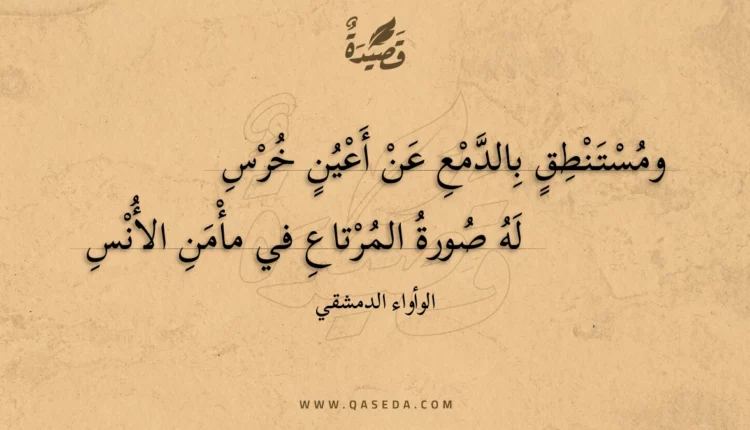 قَصِيْدَةٌ
ومُسْتَنْطِقٍ بِالدَّمْعِ عَنْ أَعْيُنٍ خُرْسِ
لَهُ صُورةُ المُرْتاعِ في مأْمَنِ الأُنْسِ
الوأواء الدمشقي
WWW.QASEDA.COM